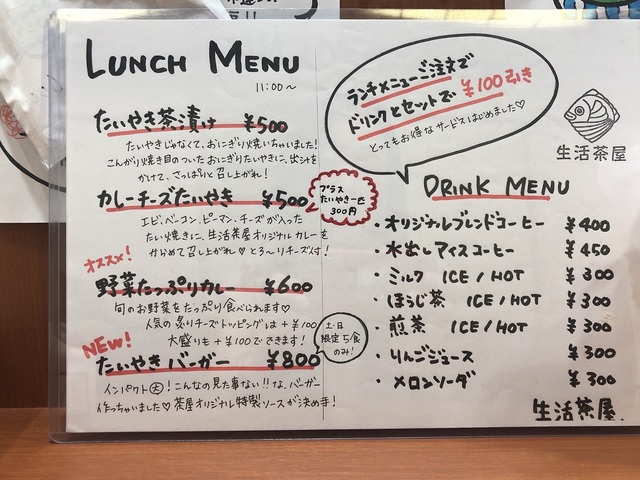 LUNCH MENU
11:00〜
たいやき茶漬け ¥500
たいやきじゃなくて、おにぎり焼いちゃいました!
こんがり焼き目のついたおにぎりたいやきに、出汁を
かけて、さっぱりと召し上がれ!
カレーチーズたいやき ¥500
プラス
たいやき一匹
300円
エビ、ベーコン、ピーマン、チーズが入った
たい焼きに、生活茶屋オリジナルカレーを
からめて召し上がれ♡とろ〜りチーズ付!
オススメ!
野菜たっぷりカレー ¥600
旬のお野菜をたっぷり食べられます♡
人気の炙りチーズトッピングは+¥100
大盛りも+¥100でできます!
NEW!
たいやきバーガー ¥800
土・日
限定5食
のみ!
インパクト大!こんなの見た事ない!!な、バーガー
作っちゃいました♡茶屋オリジナル特製ソースが決め手!
ランチメニューご注文で
ドリンクとセットで ¥100引き
とってもお得なサービスはじめました♡
生活茶屋
DRINK MENU
・オリジナルブレンドコーヒー ¥400
・水出しアイスコーヒー ¥450
・ミルク ICE/HOT ¥300
・ほうじ茶 ICE/HOT ¥300
・煎茶 ICE/HOT ¥300
・りんごジュース ¥300
・メロンソーダ ¥300
生活茶屋